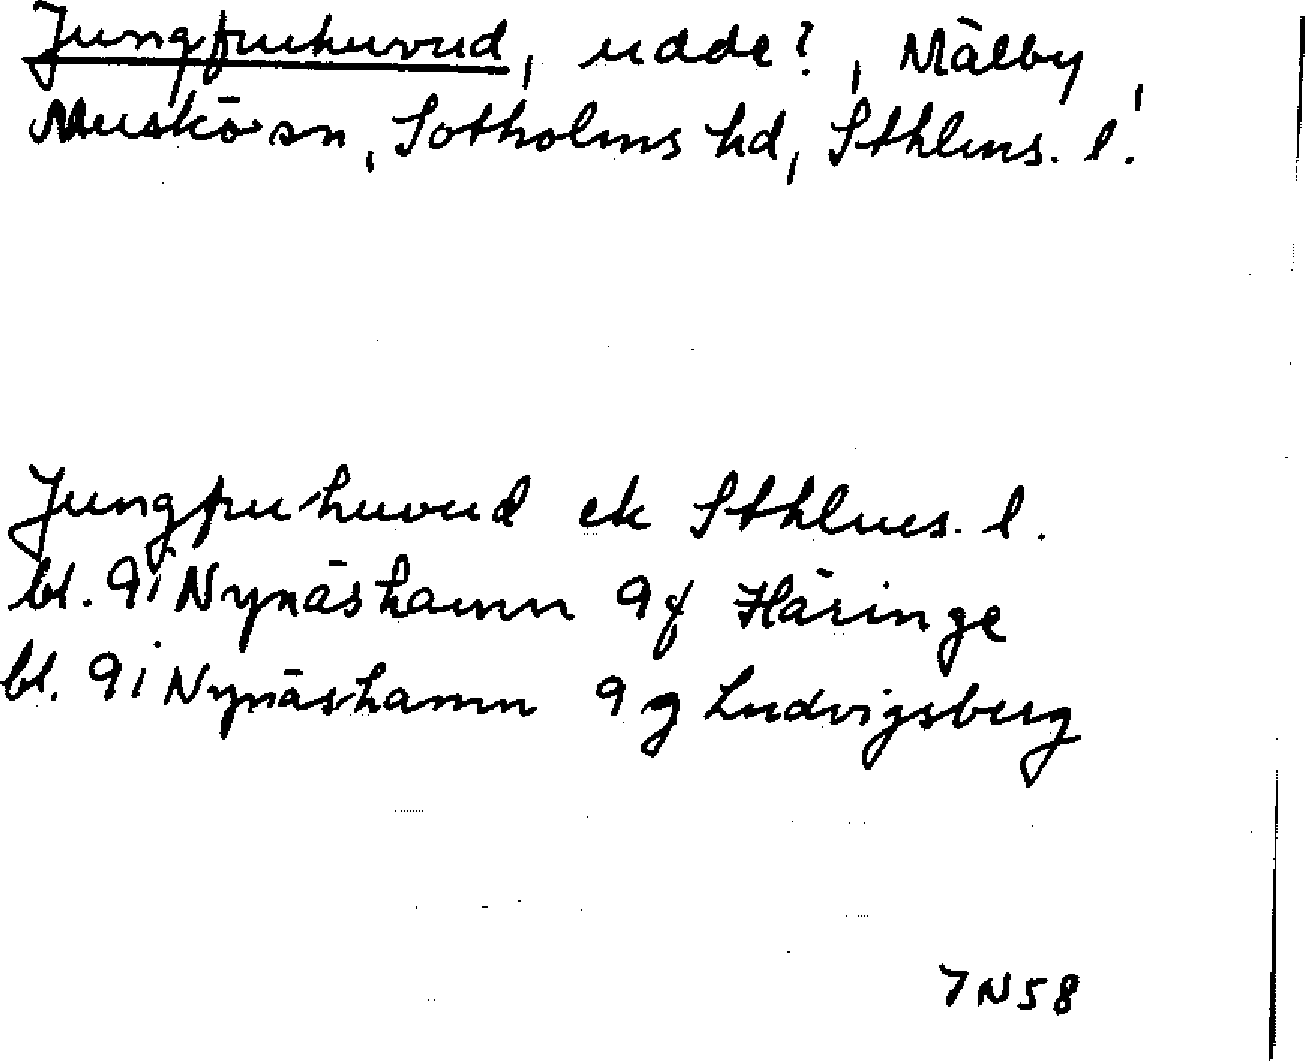 Jungfruhuvud, udde?, Mälby,
Muskö sn, Sotholms hd, Sthlms. l.
Jungfruhuvud ek Sthlms. l.
bl. 9i Nynäshamn 9f Häringe
bl. 9i Nynäshamn 9g Ludvigsberg
7N58